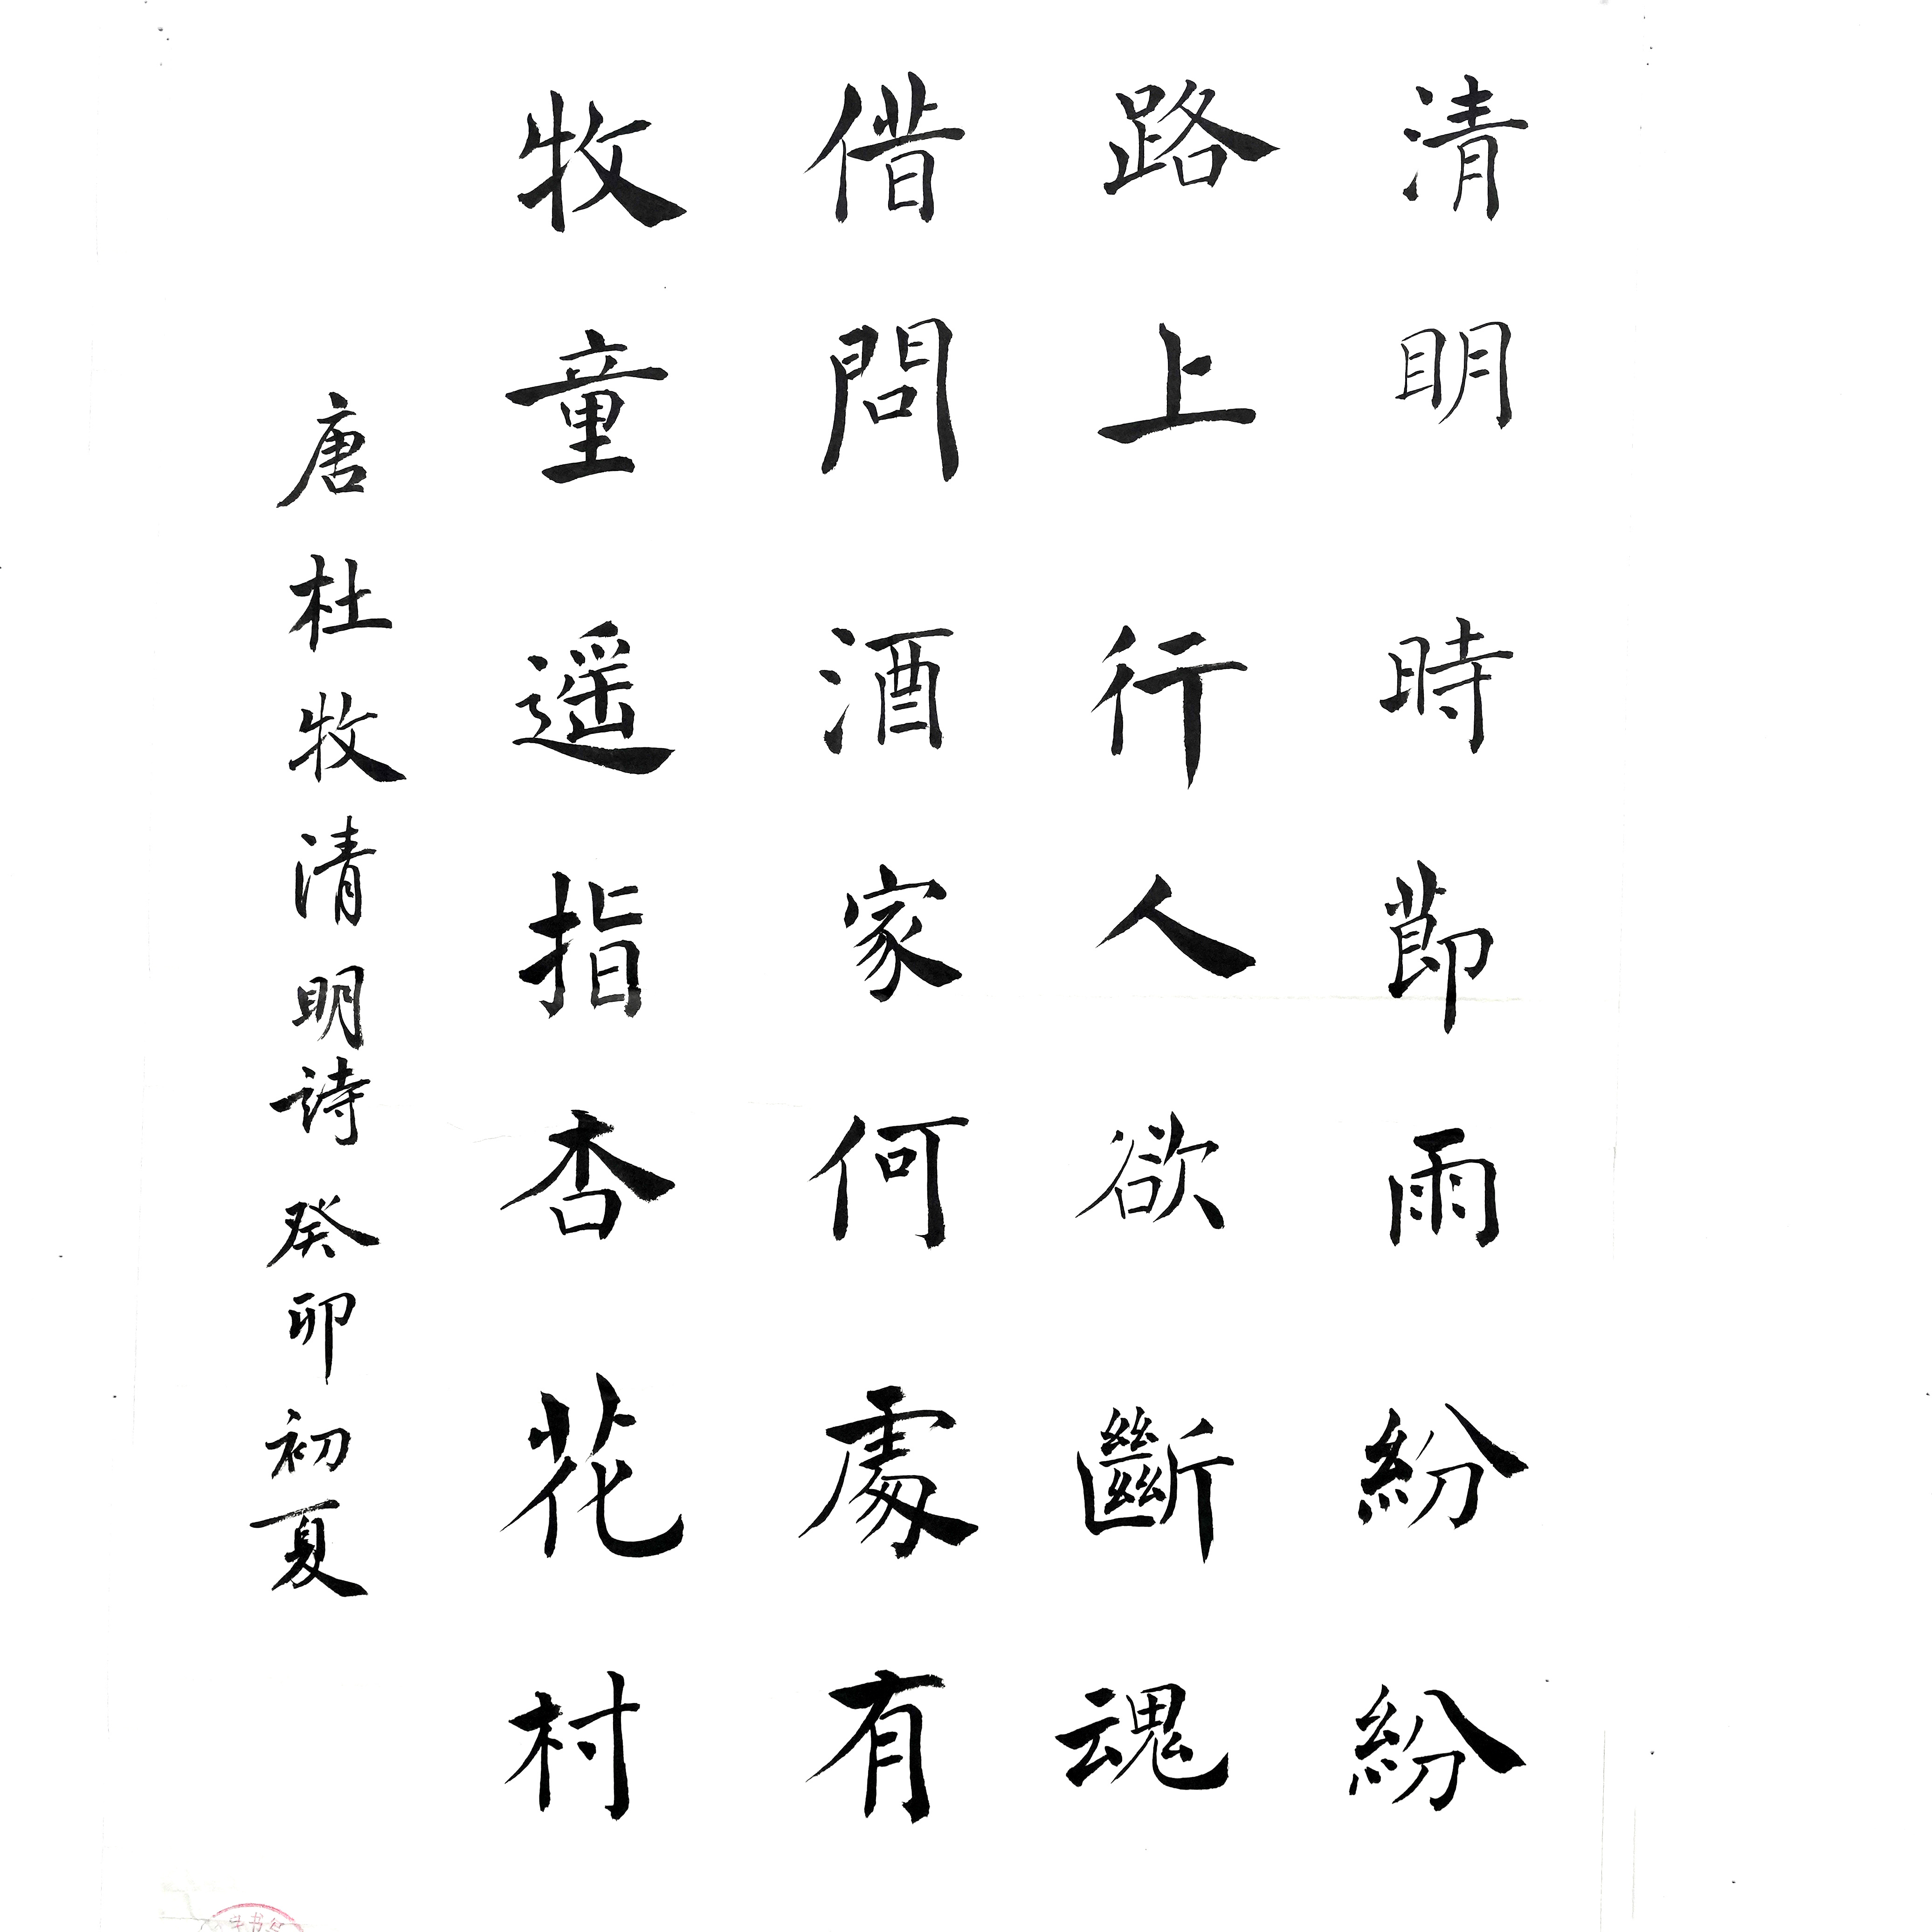 清明時節雨紛紛
路上行人欲斷魂
借問酒家何處有
牧童遥指杏花村
唐杜牧清明诗癸卯初夏